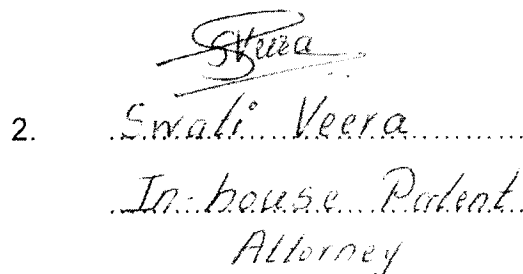 SVeera
2. Swali Veera
In-house Patent
Attorney